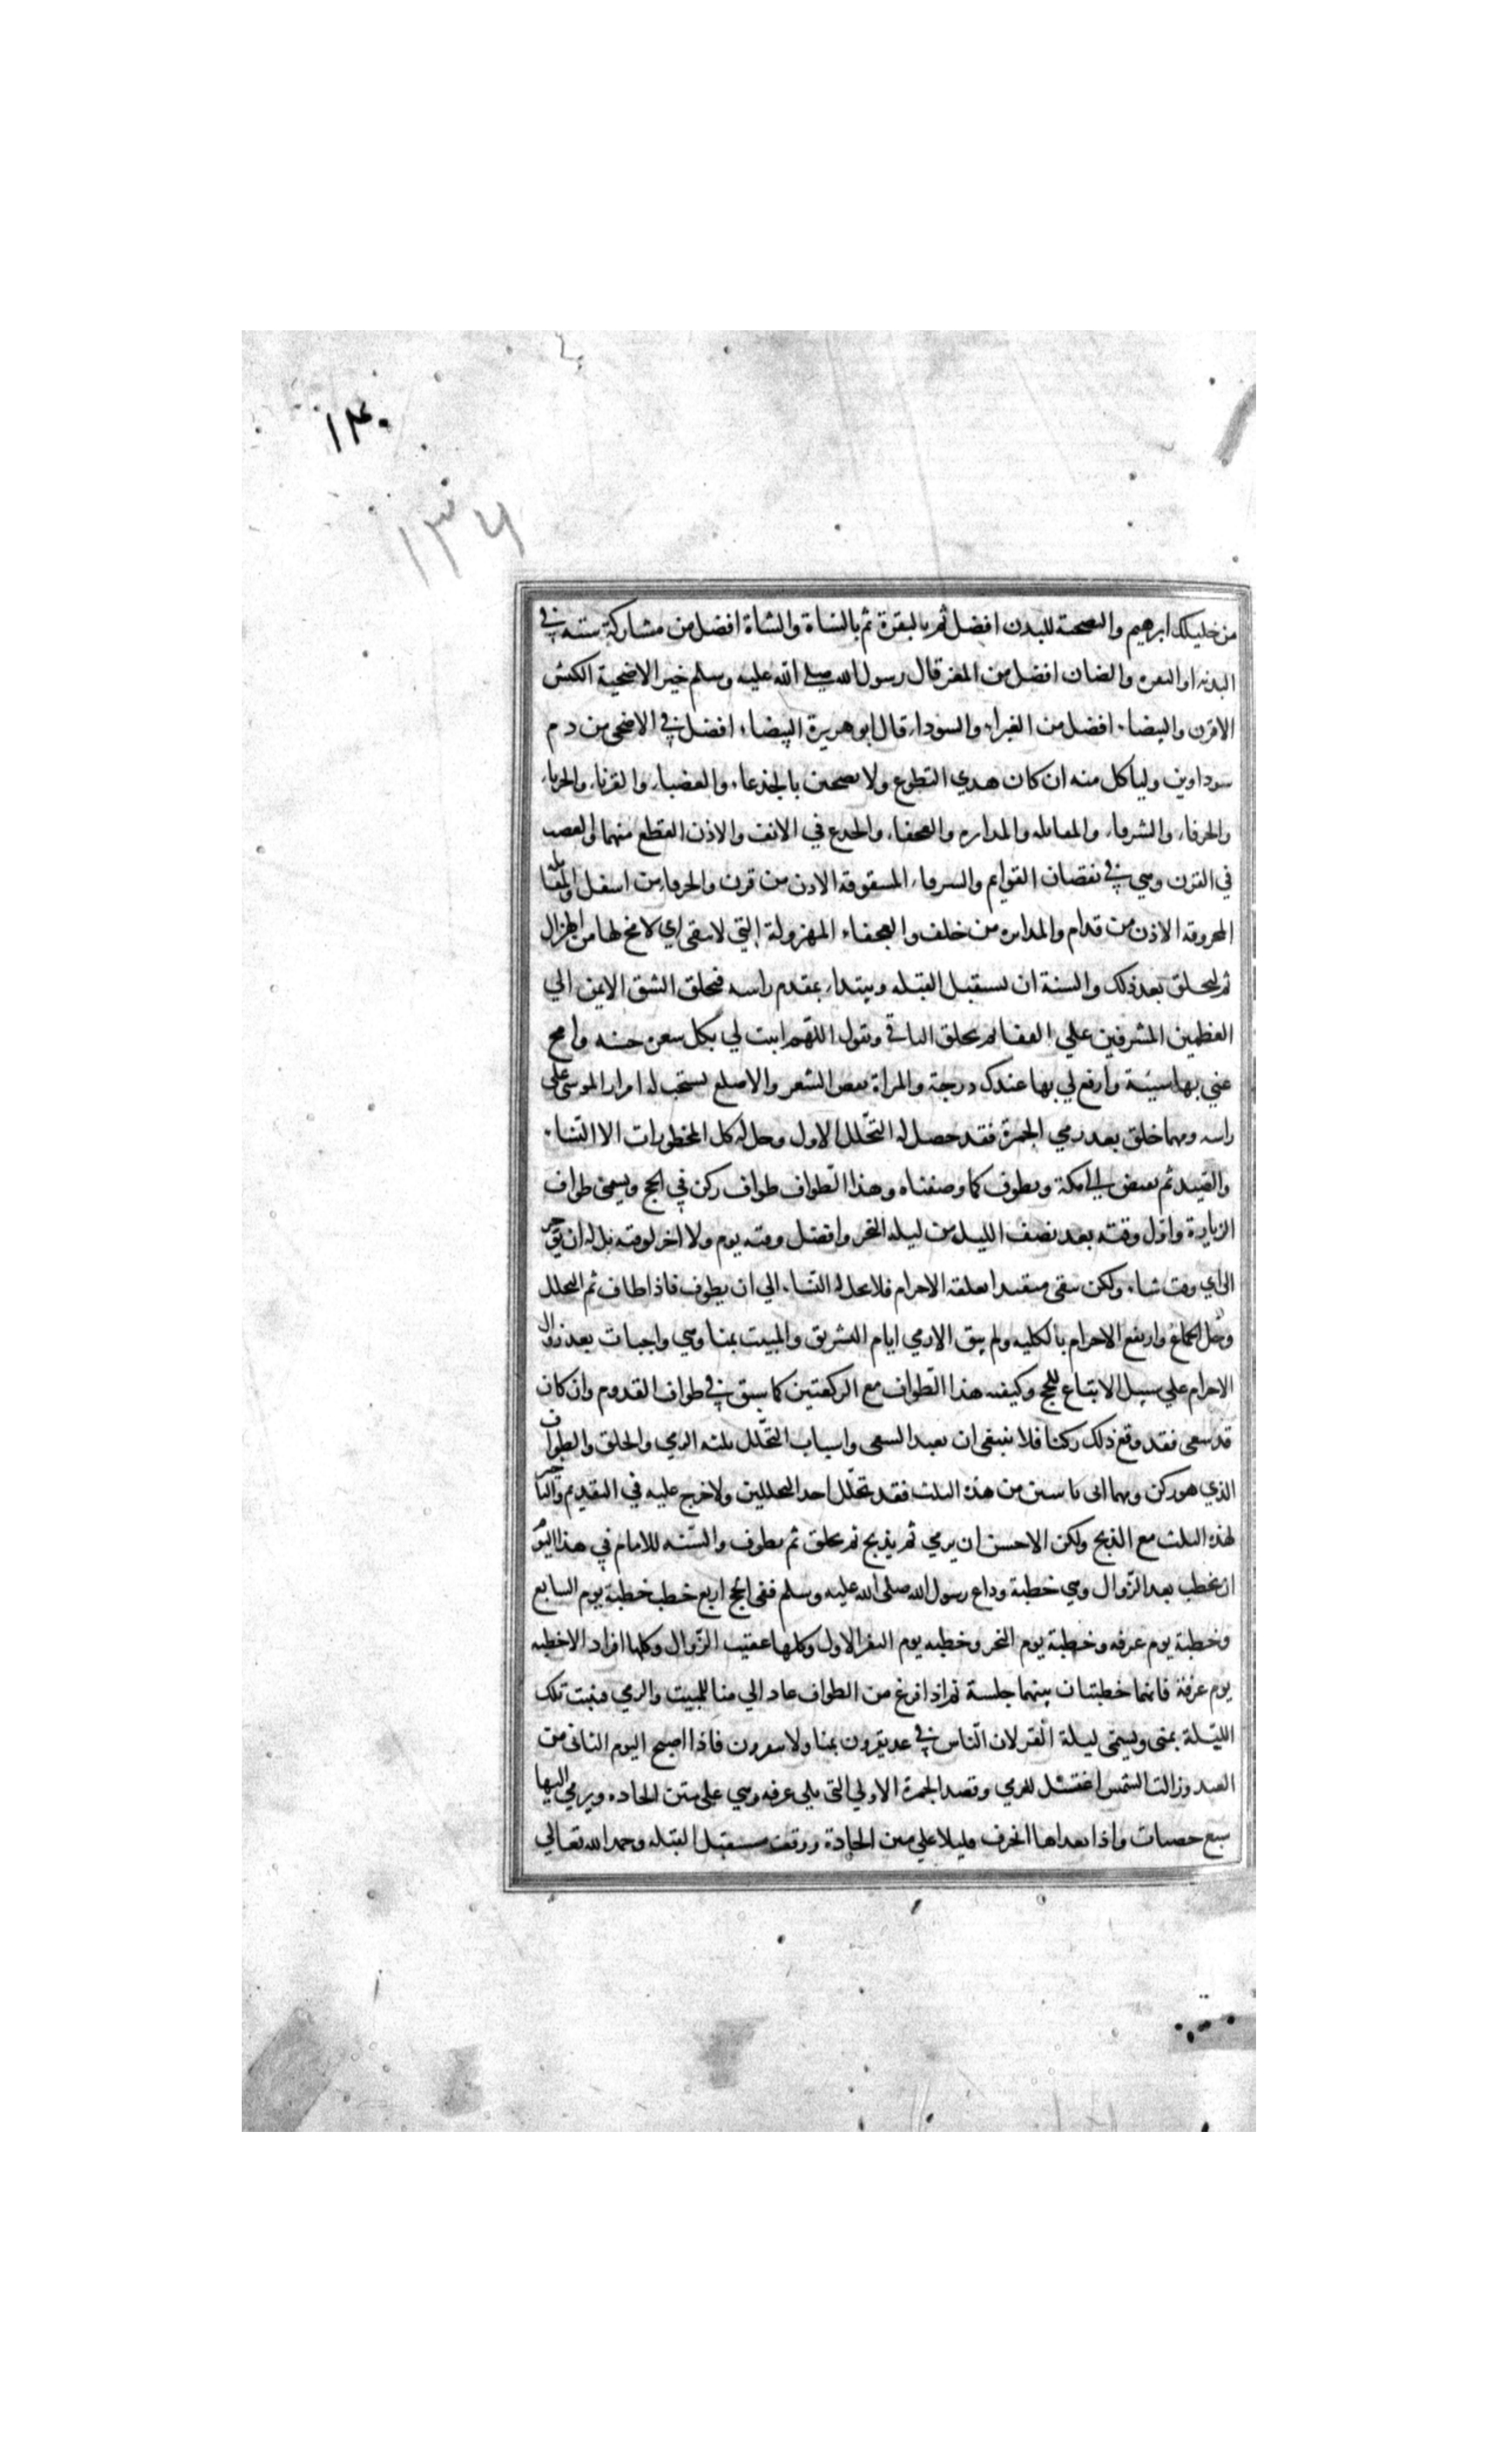 ١٣٠
١٣٦
من خليلك ابرهيم والصحية للبدن افضل ثم بالبقرة ثم بالشاة والشاة افضل من مشاركة ستة في
البدنه او البقره والضان افضل من المعز قال رسول الله صلى الله عليه وسلم خير الاضحية الكبش
الاقرن والبيضاء افضل من الغبراء والسوداء قال ابو هريرة البيضاء افضل في الاضحى من دم
سوداوين ولياكل منه ان كان هدي التطوع ولا يضحين بالجذعاء والعضباء والقرناء والجرباء
والخرقاء والشرقاء والمقابله والمدابره والعجفاء والجدع في الانف والاذن القطع منهما والعضب
في القرن وهي في نقصان القوايم والشرقاء المشقوقة الاذن من قرن والخرقاء من اسفل والمقابله
المخروقه الاذن من قدام والمدابره من خلف والعجفاء المهزولة التي لا تنقى اي لا مخ لها من الهزال
ثم ليحلق بعد ذلك والسنة ان يستقبل القبله ويبتداء بمقدم راسه فيحلق الشق الايمن الي
العظمين المشرفين علي القفا ثم يحلق الباقي ويقول اللهم اثبت لي بكل شعرة حسنه وامح
عني بها سيئة وارفع لي بها عندك درجة والمراة تقصر الشعر والاصلع يستحب له امرار الموسى على
راسه ومهما حلق بعد رمي الجمرة فقد حصل له التحلل الاول وحل له كل المحظورات الا النساء
والصيد ثم يفيض الي مكة ويطوف كما وصفناه وهذا الطواف طواف ركن في الحج ويسمى طواف
الزيارة واول وقته بعد نصف الليل من ليله النحر وافضل وقته يوم ولا اخر لوقته بل له ان يؤخر
الى اي وقت شاء ولكن يبقى مقيدا بعلقه الاحرام فلا يحل له النساء الي ان يطوف فاذا طاف ثم التحلل
وحل الجماع وارتفع الاحرام بالكليه ولم يبق الا رمي ايام التشريق والمبيت بمنا وهي واجبات بعد زوال
الاحرام علي سبيل الاتباع للحج وكيفيه هذا الطواف مع الركعتين كما سبق في طواف القدوم وان كان
قد سعى فقد وقع ذلك ركنا فلا ينبغي ان يعيد السعى واسباب التحلل ثلثه الرمي والحلق والطواف
الذي هو ركن ومهما اتى باثنين من هذه الثلث فقد تحلل احد التحللين ولا حرج عليه في التقديم والتاخير
لهذه الثلث مع الذبح ولكن الاحسن ان يرمي ثم يذبح ثم يحلق ثم يطوف والسنه للامام في هذا اليوم
ان يخطب بعد الزوال وهي خطبة وداع رسول الله صلى الله عليه وسلم ففى الحج اربع خطب خطبة يوم السابع
وخطبة يوم عرفه وخطبة يوم النحر وخطبه يوم النفر الاول وكلها عقيب الزوال وكلها افراد الا خطبه
يوم عرفة فانها خطبتان بينهما جلسة ثم اذا فرغ من الطواف عاد الي منا للمبيت والرمي فيبت تلك
الليلة بمنى ويسمى ليلة القر لان الناس في غد يقرون بمنا ولا ينفرون فاذا اصبح اليوم الثانى من
العيد وزالت الشمس اغتسل للرمي وقصد الجمرة الاولي التي يلي عرفه وهي على متن الجاده ويرمي اليها
سبع حصيات واذا تعداها انحرف قليلا علي متن الجادة ووقف مستقبل القبله وحمد الله تعالي